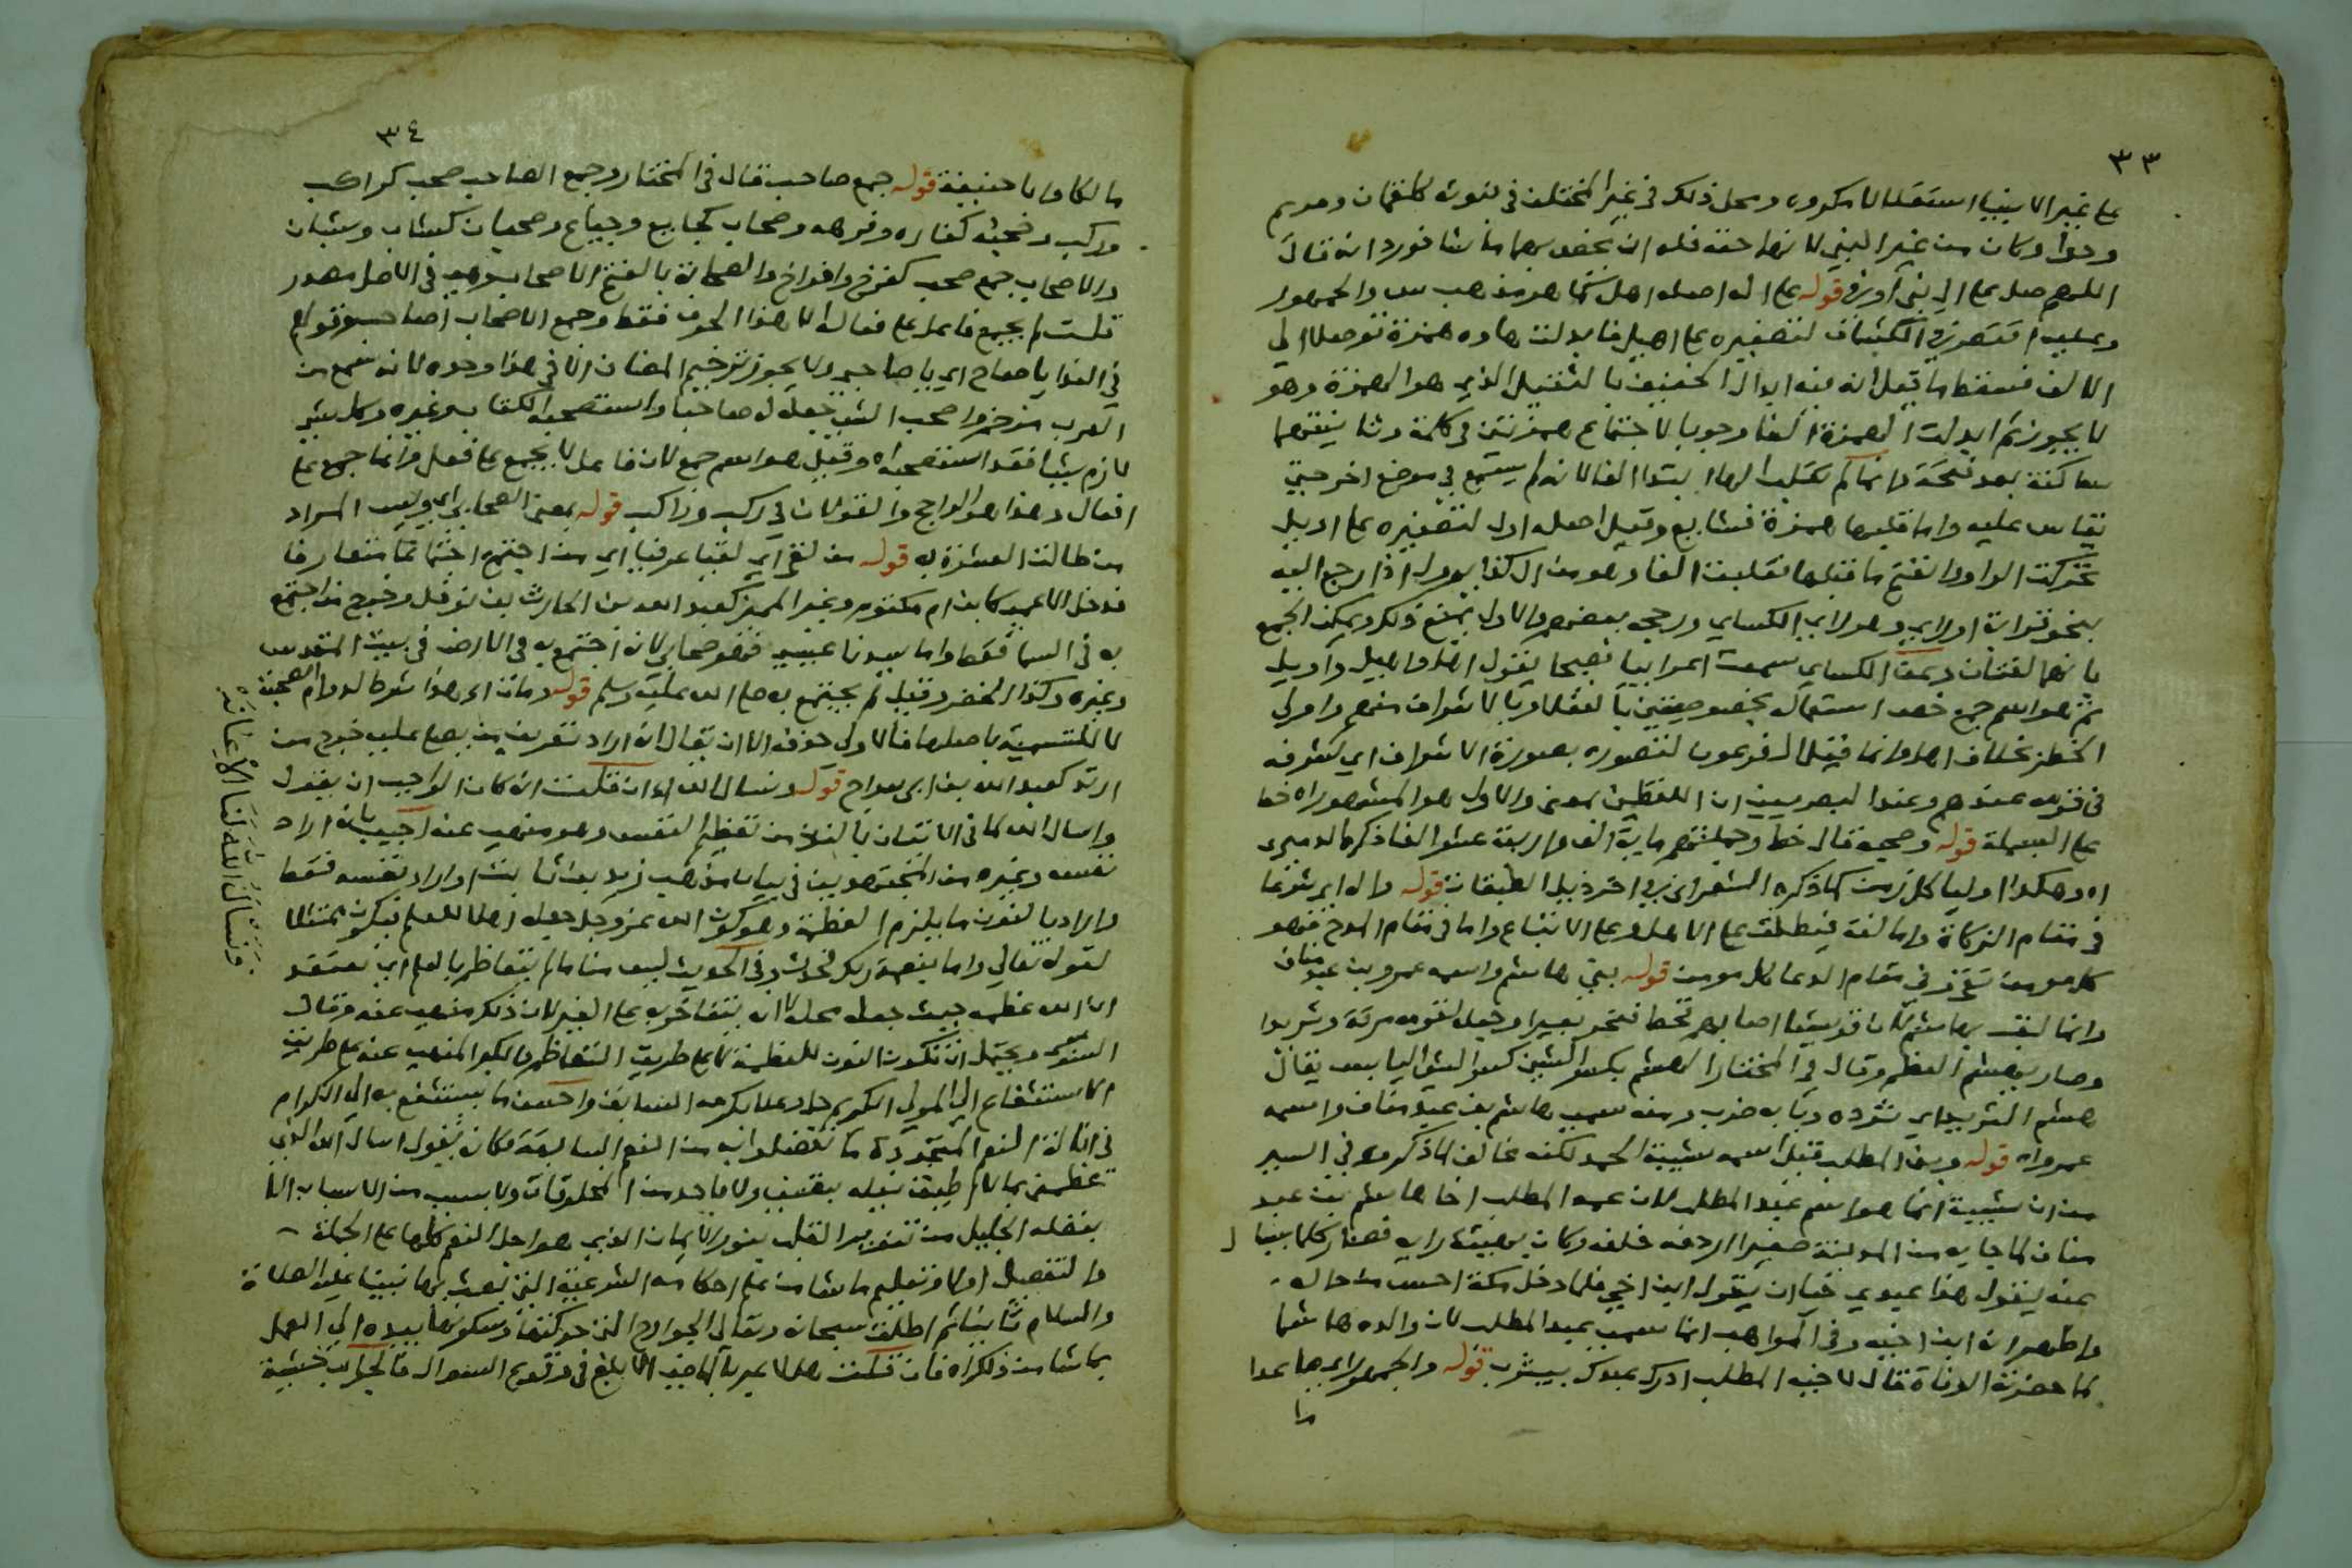 ٣٣
على غير الانبياء استقلالا مكروه ومحل ذلك في غير المختلف في نبوته كلقمان ومريم
وحوا وكان من غير النبي لانها حقه فله ان يخص بها ما شا فورد انه قال
اللهم صل على ال بني اوفى قوله على اله اصله اهل كما هو مذهب س والجمهور
وعليه اقتصر في الكشاف لتصغيره على اهيل فابدلت هاوه همزة توصلا الى
الالف فسقط ما قيل انه فيه ابدال الخفيف بالثقيل الذي هو الهمزة وهو
لا يجوز ثم ابدلت الهمزة الفا وجوبا لاجتماع همزتين في كلمة وثانيتهما
ساكنة بعد فتحة وانما لم تقلب الها ابتدا الفا لانه لم يسمع في موضع اخر حتى
يقاس عليه واما قلبها همزة فشايع وقيل اصله اول لتصغيره على اويل
تحركت الواو وانفتح ما قبلها فقلبت الفا وهو من ال كذا يوول اذا رجع اليه
بنحو قرابة او راي وهو راي الكساي ورجحه بعضهم والاول يمنع ذلك ويمكن الجمع
بانهما لغتان وعن الكساي سمعت اعرابيا فصيحا يقول اهل واهيل وال واويل
ثم هو اسم جمع خص استعماله بخصوصيتين بالعقلا وبالاشراف منهم واولي
الخطر بخلاف اهل وانما قيل ال فرعون لتصوره بصورة الاشراف اي لشرفه
في قومه عندهم وعند البصريين ان اللفظين بمعنى والاول هو المشهور اه خط
على البسملة قوله وصحبه قال خط وجملتهم ماية الف واربعة عشر الفا ذكره الدميري
اه وهكذا اوليا كل زمن كما ذكره الشعراني في اخر ذيل الطبقات قوله واله اي شرعا
في مقام الزكاة واما لغة فيطلق على الاهل وعلى الاتباع واما في مقام المدح فهو
كل مومن تقي وفي مقام الدعا كل مومن قوله بني هاشم واسمه عمرو بن عبد مناف
وانما لقب بهاشم لان قريشا اصابهم قحط فنحر بعيرا وجعل لقومه مرقة وثريدا
وصار يهشم العظم وقال في المختار الهشم بكسر الشين كسر الشي اليابس يقال
هشم الثريد اي ثرده وبابه ضرب ومنه سمي هاشم بن عبد مناف واسمه
عمرو اه قوله وبني المطلب قيل اسمه شيبة الحمد لكنه مخالف لما ذكروه في السير
من ان شيبة انما هو اسم عبد المطلب لان عمه المطلب اخا هاشم بن عبد
مناف لما جا به من المدينة صغيرا اردفه خلفه وكان بهيئة رثة فصار كلما يسال
عنه يقول هذا عبدي حيا ان يقول ابن اخي فلما دخل مكة احسن من حاله
واظهر انه ابن اخيه وفي المواهب انما سمي بعبد المطلب لان والده هاشما
لما حضرته الوفاة قال لاخيه المطلب ادرك عبدك بيثرب قوله والجمهور اي ما عدا
ما
٣٤
مالكا وابا حنيفة قوله جمع صاحب قال في المختار وجمع الصاحب صحب كراكب
وركب وصحبة كفاره وفرهه وصحاب كجايع وجياع وصحبان كشاب وشبان
والاصحاب جمع صحب كفرخ وافراخ والصحابة بالفتح الاصحاب وهي في الاصل مصدر
قلت لم يجمع فاعل على فعالة الا هذا الحرف فقط وجمع الاصحاب اصاحيب وقولهم
في الندا يا صاح اي يا صاحبي ولا يجوز ترخيم المضاف الا في هذا وحده لانه سمع من
العرب مرخما واصحب الشي جعله له صاحبا واستصحبه الكتاب وغيره وكل شي
لازم شيا فقد استصحبه اه وقيل هو اسم جمع لان فاعل لا يجمع على فعل وانما جمع على
افعال وهذا هو الراجح والقولان في ركب وراكب قوله بمعنى الصحابي اي وليس المراد
من طالت العشرة به قوله من لقي اي لقيا عرفيا اي من اجتمع اجتماعا متعارفا
فدخل الاعمى كابن ام مكتوم وغير المميز كعبد الله بن الحارث بن نوفل وخرج من اجتمع
به في السما فقط واما سيدنا عيسى فهو صحابي لانه اجتمع به في الارض في بيت المقدس
وغيره وكذا الخضر وقيل لم يجتمع به صلى الله عليه وسلم قوله ومات اي هذا شرط لدوام الصحبة
لا للتسمية باصلها فالاولى حذفه الا ان يقال انه اراد تعريف من يصلى عليه خرج من
ارتد كعبد الله بن ابي سراح قوله ونسال الله ان قلت انه كان الواجب ان يقول
واسال الله لما في الاتيان بالنون من تعظيم النفس وهو منهي عنه اجيب بانه اراد
نفسه وغيره من المجتهدين في بيان مذهب زيد بن ثابت او اراد نفسه فقط
واراد بالنون ما يلزم العظمة وهو كون الله عز وجل جعله اهلا للعلم فيكون ممتثلا
لقوله تعالى واما بنعمة ربك فحدث وفي الحديث ليس منا من لم يتعاظم بالعلم اي يعتقد
ان الله عظمه حيث جعله محلا له لا ان يتفاخر به على الغير لان ذلك منهي عنه وقال
السنوسي ويحتمل ان تكون النون للعظمة لا على طريق التعاظم والكبر المنهي عنه بل على طريق
الاستشفاع الى المولى الكريم جل وعلا بكرمه السابق واحسن ما يستشفع به الى الكرام
في انالة النعم المتجددة ما تفضلوا به من النعم السابقة فكانه يقول اسال الله الذي
عظمني بما لا اطيق نيله بنفسي ولا باحد من المخلوقات ولا بسبب من الاسباب الا
بفضله الجليل من تنوير القلب بنور الايمان الذي هو اجل النعم كلها على الجملة
والتفصيل اولا وتعليم ما شا من علم احكامه الشرعية التي بعث بها نبينا عليه الصلاة
والسلام ثانيا ثم اطلق سبحانه وتعالى الجوارح التي حركتها وسكونها بيده الى العمل
بما شا من ذلك اه فان قلت هلا عبر بالماضي لانه ابلغ في وقوع السوال فالجواب خشية
ونسأل الله لنا الاعانه